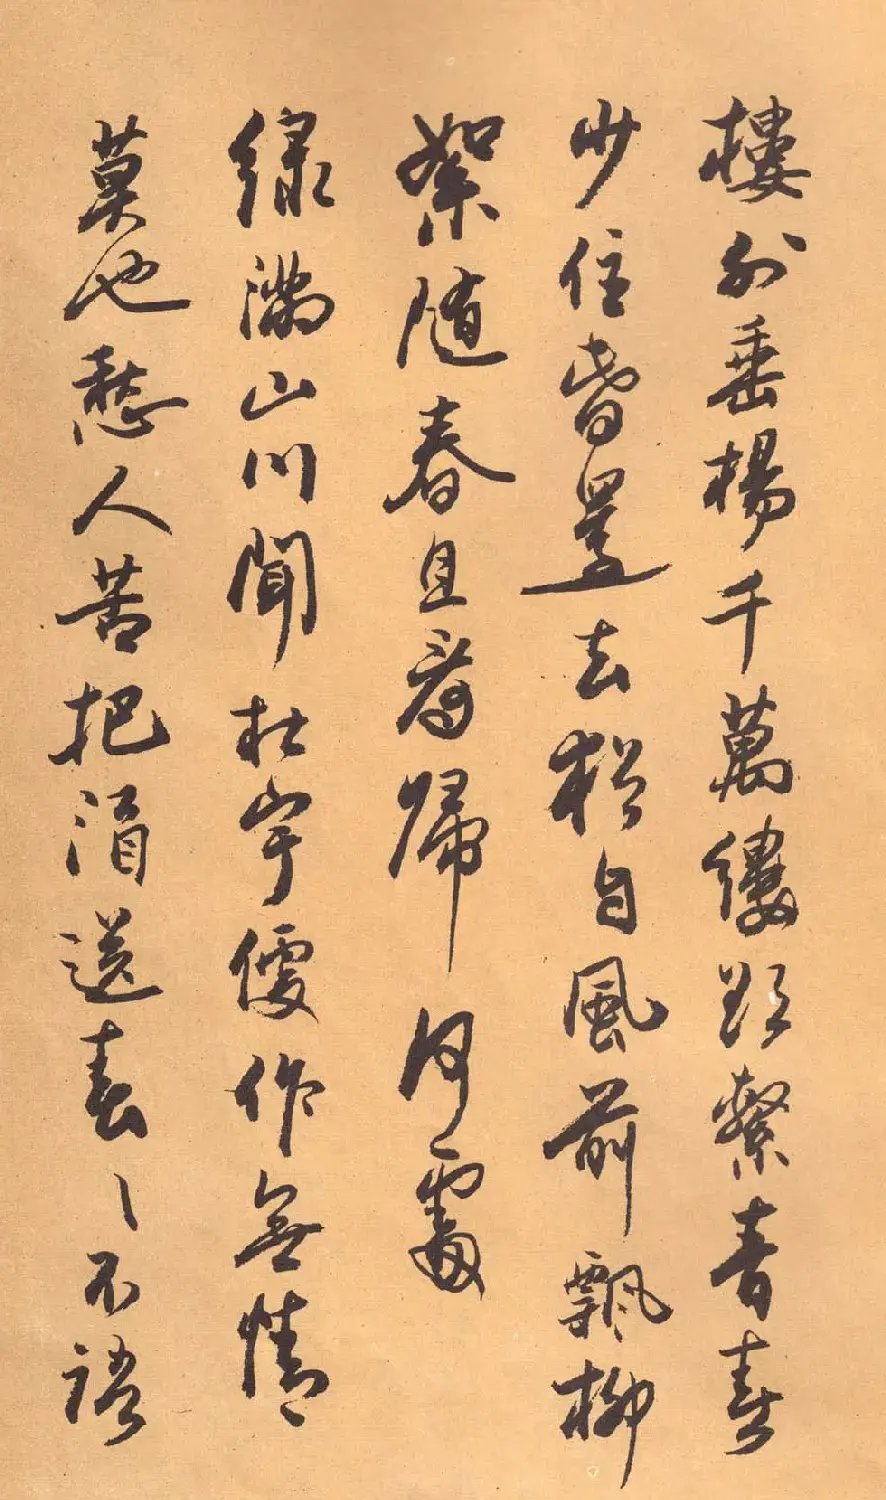 樓外垂楊千萬縷欲繫青春
少住春還去猶自風前飄柳
絮随春且看歸何處
綠滿山川聞杜宇便作無情
莫也愁人苦把酒送春〻不語